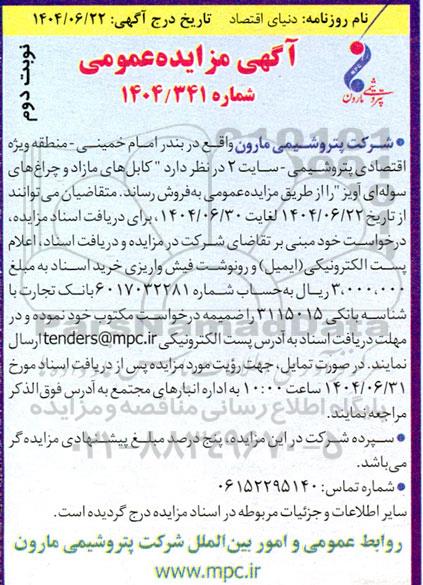 نام روزنامه: دنیای اقتصاد تاریخ درج آگهی: ۱۴۰۴/۰۶/۲۲
نوبت دوم
آگهی مزایده عمومی
شماره ۱۴۰۴/۳۴۱
پتروشیمی مارون
• شرکت پتروشیمی مارون واقع در بندر امام خمینی - منطقه ویژه
اقتصادی پتروشیمی - سایت ۲ در نظر دارد " کابل‌های مازاد و چراغ‌های
سوله‌ای آویز "را از طریق مزایده عمومی به‌فروش رساند. متقاضیان می‌توانند
از تاریخ ۱۴۰۴/۰۶/۲۲ لغایت ۱۴۰۴/۰۶/۳۰ ، برای دریافت اسناد مزایده،
درخواست خود مبنی بر تقاضای شرکت در مزایده و دریافت اسناد، اعلام
پست الکترونیکی (ایمیل) و رونوشت فیش واریزی خرید اسناد به مبلغ
۳,۰۰۰,۰۰۰ ریال به‌حساب شماره ۶۰۱۷۰۳۲۲۸۱ بانک تجارت با
شناسه بانکی ۳۱۱۵۰۱۵ را ضمیمه درخواست مکتوب خود نموده و در
مهلت دریافت اسناد به آدرس پست الکترونیکی tenders@mpc.ir ارسال
نمایند. در صورت تمایل، جهت رؤیت مورد مزایده پس از دریافت اسناد مورخ
۱۴۰۴/۰۶/۳۱ ساعت ۱۰:۰۰ به اداره انبارهای مجتمع به آدرس فوق الذکر
مراجعه نمایند.
• سپرده شرکت در این مزایده، پنج درصد مبلغ پیشنهادی مزایده گر
می‌باشد.
• شماره تماس: ۰۶۱۵۲۲۹۵۱۴۰
سایر اطلاعات و جزئیات مربوطه در اسناد مزایده درج گردیده است.
روابط عمومی و امور بین‌الملل شرکت پتروشیمی مارون
www.mpc.ir
ParsNamadData
پایگاه اطلاع رسانی مناقصه و مزایده
۰۲۱-۸۸۳۴۹۶۷۰-۵